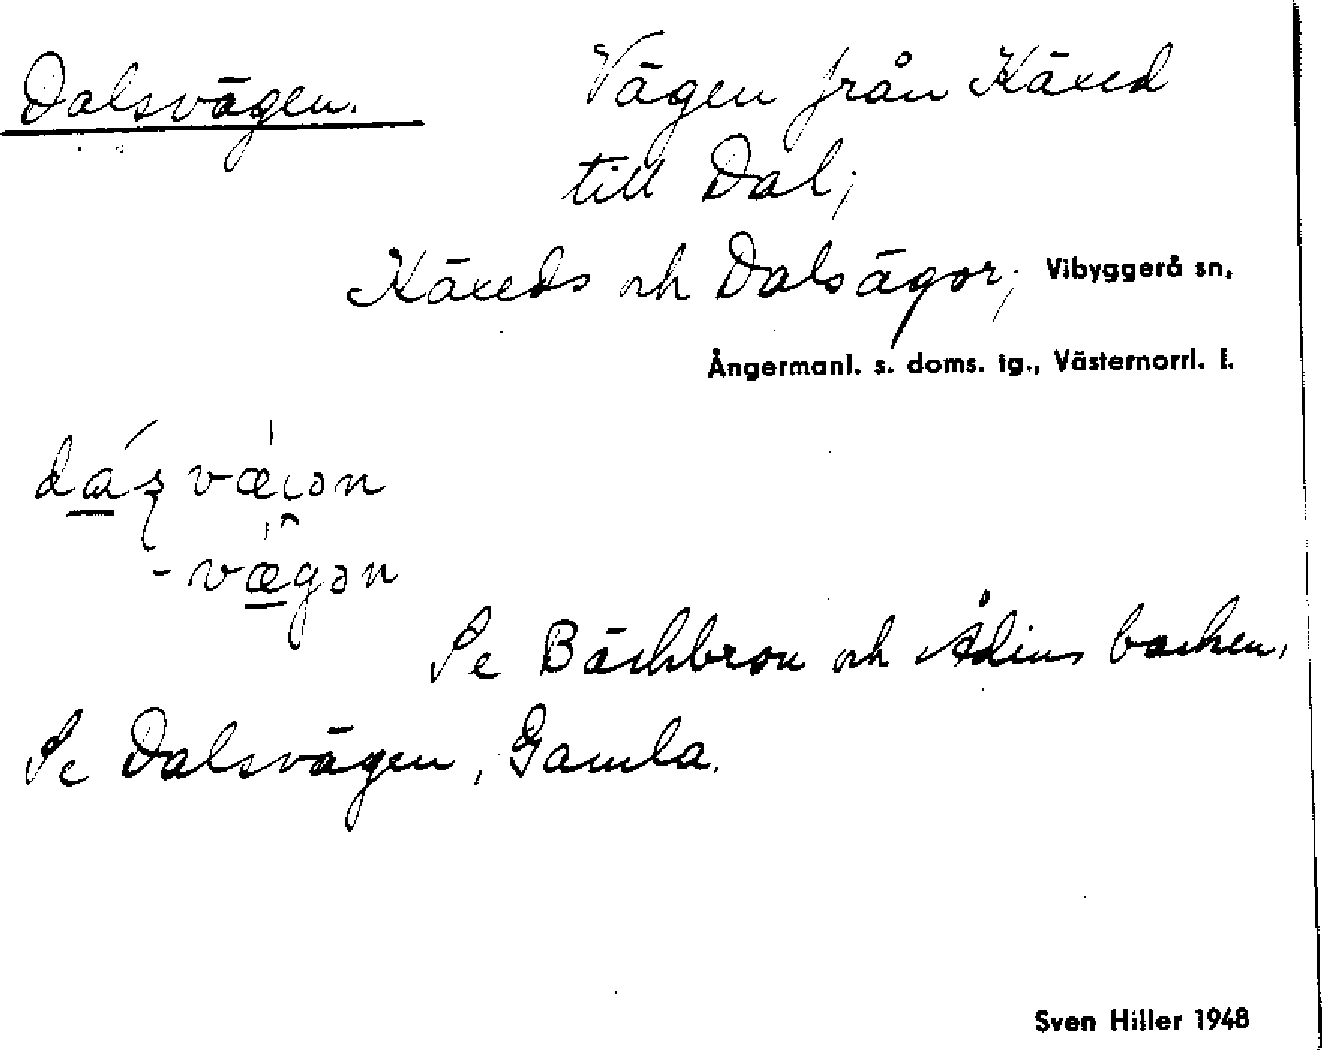 Dalsvägen. Vägen från Käxed
till Dal;
Käxeds och Dals ägor; Vibyggerå sn,
Ångermanl. s. doms. tg., Västernorrl. l.
-vægən
Se Bäckbron och Ådins backen.
Se Dalsvägen, Gamla.
Sven Hiller 1948